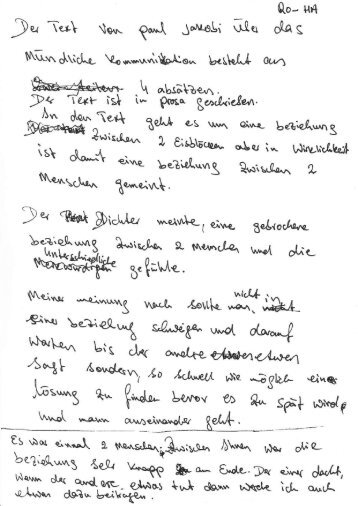 RO-HA
Der Text von paul Jakobi über das
Mündliche kommunikation besteht aus
4 absätzen.
Der Text ist in prosa geschrieben.
In den Text geht es um eine beziehung
zwischen 2 Eisblöcken aber in wirklichkeit
ist damit eine beziehung zwischen 2
Menschen gemeint.
Der Dichter meinte, eine gebrochene
beziehung zwischen 2 Menschen und die
unterschiedliche gefühle.
Meiner meinung nach sollte man, nicht in
einer beziehung schweigen und darauf
warten bis der andere etwas
sagt sondern, so schnell wie möglich eine
lösung zu finden bevor es zu spät wird
und mann auseinander geht.
Es war einmal 2 menschen, zwischen Ihnen war die
beziehung sehr knapp am Ende. Der einer dacht,
wenn der andere etwas tut dann werde ich auch
etwas dazu beitragen.